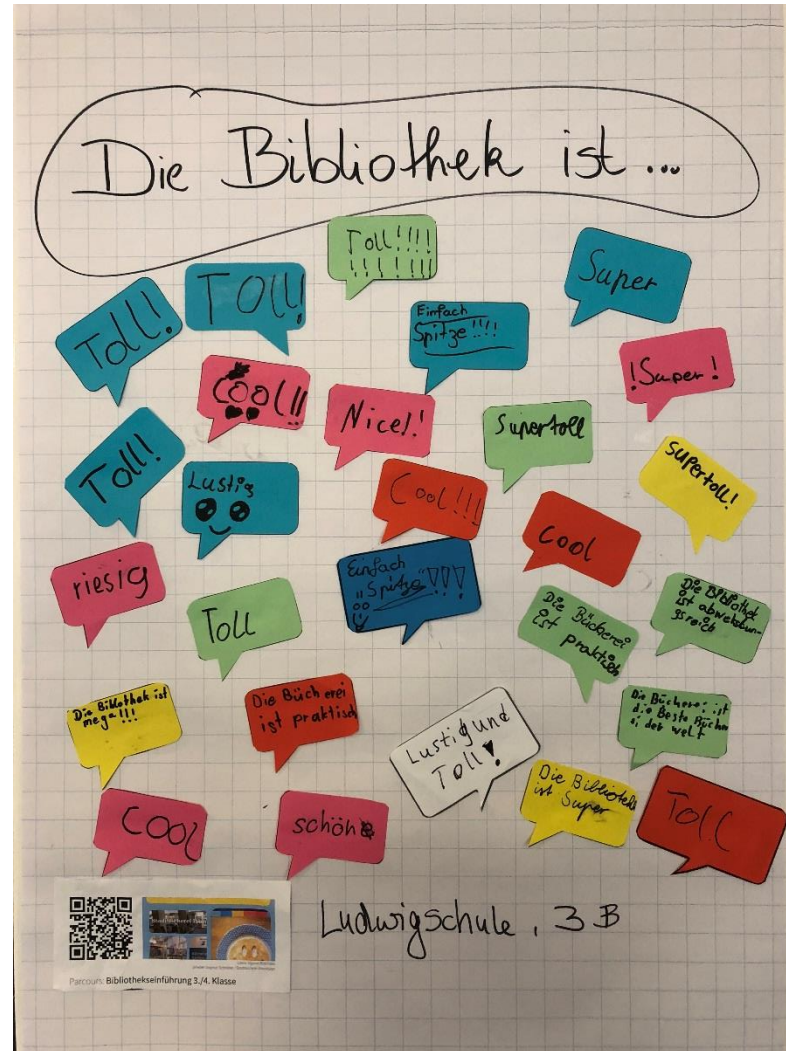 Die Bibliothek ist ...
Toll!!!!
!!!!!!!!
Super
Toll!
TOll!
Einfach
Spitze!!!!
!Super!
Cool!!
Nice!!
Supertoll
Supertoll!
Toll!
Lustig
Cool!!!
Cool
riesig
Toll
Einfach
"Spitze"!!!
Die Bücherei
ist praktisch
Die Bibliothek
ist abwekslun-
gsreich
Die Biblothek ist
mega!!!
Die Bücherei
ist praktisch
Lustig und
Toll!
Die Bücherei ist
die Beste Bücher
ei der welt
Die Bibliotehk
ist Super
Toll
Cool
schön
Ludwigschule, 3B
Parcours: Bibliothekseinführung 3./4. Klasse